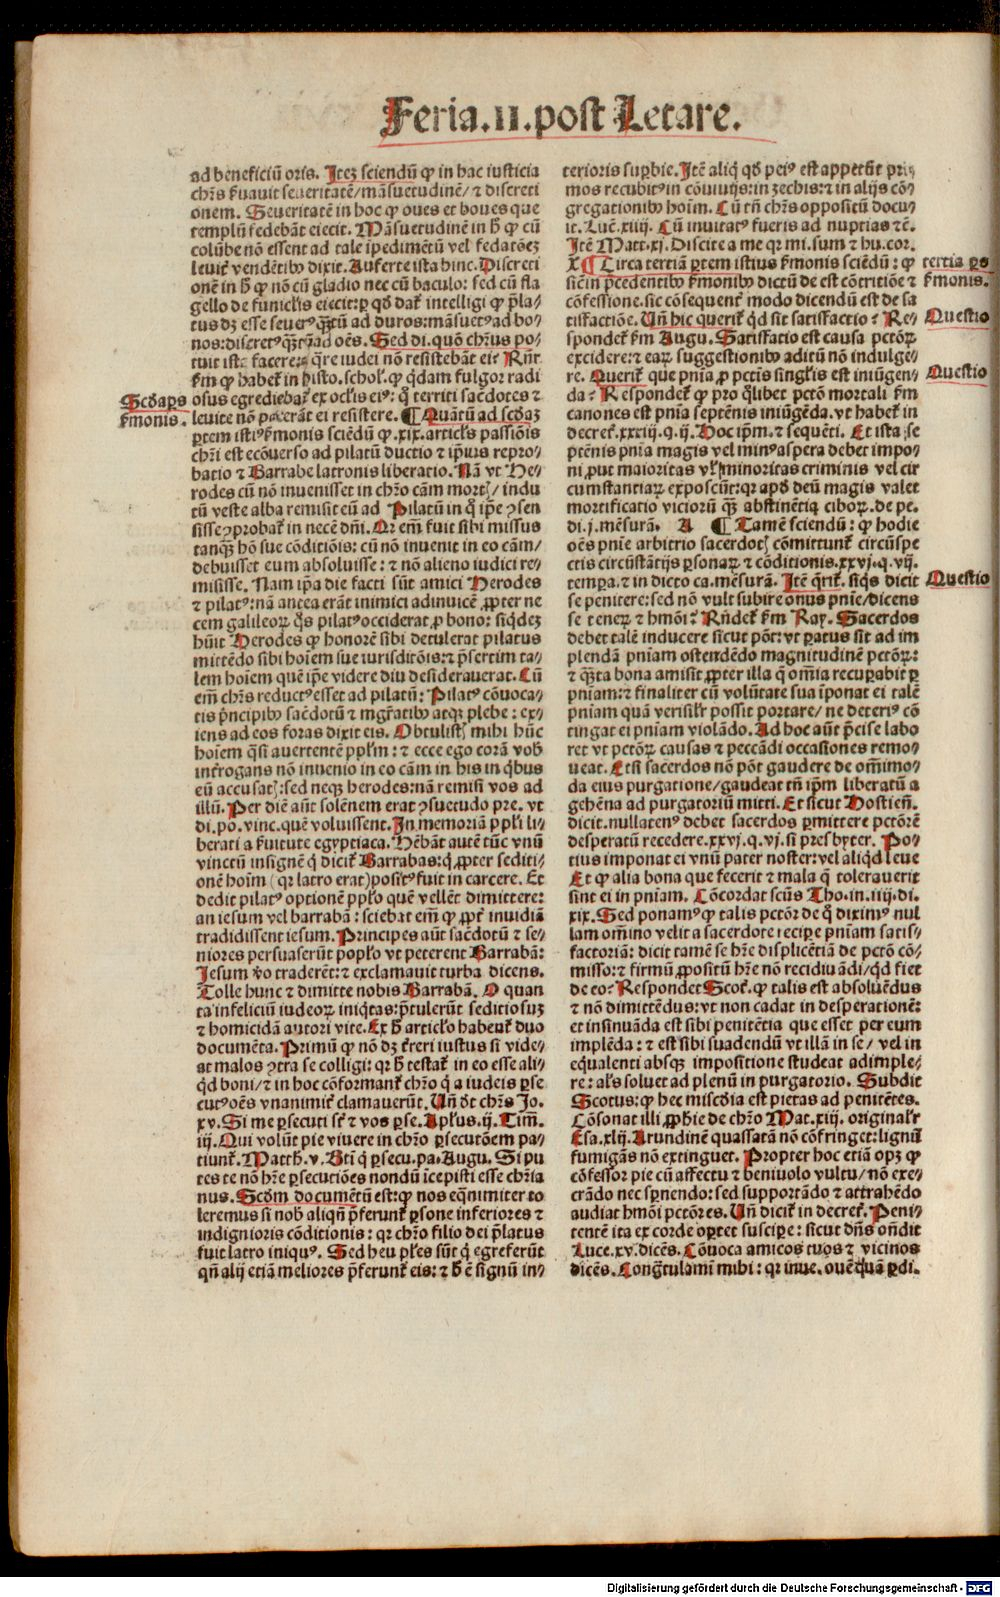 Feria.II.post Letare.
ad beneficiū oris. Itez sciendū ꝙ in hac iusticia
chr̄s s̄uauit seueritatē/ māsuetudinē/ ⁊ discreti
onem. Seueritatē in hoc ꝙ oues et boues que
templū fedebāt eiecit. Māsuetudinem in h̄ ꝙ cū
colūbe nō essent ad tale ipedimētū vel fedatōez
leuiꝰ vendētibꝰ dixit. Auferte ista hinc. Discreti
onē in h̄ ꝙ nō cū gladio nec cū baculo: sed cū fla
gello de funicl̄is eiecit: ꝑ qd̄ dat̄ intelligi ꝙ p̄la/
tus dz esse seuerꝰ ꝗ̄tū ad duros: māsuetꝰ ad bo/
nos: discretꝰ ꝗ̄tū ad oēs. Sed di. quō chr̄us po/
tuit ista facere: ꝗ̄re iudei nō resistebāt ei? Rn̄r
s̄m ꝙ habet̄ in histo. schol. ꝙ ꝗdam fulgor radi
Scd̄a ꝑs osus egrediebat̄ ex ocl̄is eiꝰ: ꝗ̄ territi sac̄dotes ⁊
s̄monis. leuite nō poterāt ei resistere. ¶ Quātū ad scd̄az
ꝑtem istiꝰ s̄monis sciendū ꝙ .xix. articl̄s passiōis
chr̄i est ecōuerso ad pilatū ductio ⁊ ip̄ius repro/
batio ⁊ Barrabe latronis liberatio. Nā vt He/
rodes cū nō inuenisset in chr̄o cām mort̄/ indu
tū veste alba remisit eū ad Pilatū in ꝗ̄ ip̄e ꝯsen
sisse ꝯprobat̄ in necē dn̄i. Qr em̄ fuit sibi missus
tanꝗ̄ hō sue cōditiōis: cū nō inuenit in eo cām/
debuisset eum absoluisse: ⁊ nō alieno iudici re/
misisse. Nam ip̄a die facti sūt amici Herodes
⁊ pilatꝰ: nā antea erāt inimici adinuicē ꝓpter ne
cem galileoꝝ ꝗ̄s pilatꝰ occiderat ꝓ bono: siqdez
hūit Herodes ꝙ honorē sibi detulerat pilatus
mittēdo sibi hoīem sue iurisditōis: ⁊ p̄sertim ta/
lem hoīem quē ip̄e videre diu desiderauerat. Cū
em̄ chr̄s reductꝰ esset ad pilatū: Pilatꝰ cōuoca/
tis p̄ncipibꝰ sac̄dotū ⁊ mgr̄atibꝰ atꝗ̄ plebe: ex/
iens ad eos foras dixit eis. Obtulist̄ mihi hūc
hoīem ꝗ̄si auertentē ppl̄m: ⁊ ecce ego corā vob̄
int̄rogans nō inuenio in eo cām in his in ꝗ̄bus
eū accusat̄: sed neꝗ̄ herodes: nā remisi vos ad
illū. Per diē aūt solēnem erat ꝯsuetudo pre. vt
di. po. vinc. quē voluissent. In memoriā ppl̄i li/
berati a s̄uitute egyptiaca. Hēbāt autē tūc vnū
vinctū insignē ꝗ̄ dicit̄ Barrabas: ꝗ̄ ꝓpter sediti/
onē hoīm (qr latro erat) positꝰ fuit in carcere. Et
dedit pilatꝰ optionē ppl̄o quē vellēt dimittere:
an iesum vel barrabā: sciebat em̄ ꝙ ꝓpt̄ inuidiā
tradidissent iesum. Principes aūt sac̄dotū ⁊ se/
niores persuaserūt popl̄o vt peterent Barrabā:
Jesum v̄o traderēt: ⁊ exclamauit turba dicens.
Tolle hunc ⁊ dimitte nobis Barrabā. O quan
ta infeliciū iudeoꝝ iniꝗ̄tas: p̄tulerūt seditiosuz
⁊ homicidā autori vite. Ex h̄ articl̄o habent̄ duo
documēta. Primū ꝙ nō dz t̄reri iustus si vide/
at malos ꝯtra se colligi: qr h̄ testat̄ in eo esse ali/
ꝗ̄d boni/ ⁊ in hoc cōformant̄ chr̄o ꝗ̄ a iudeis ꝑse
cutꝰ oēs vnanimit̄ clamauerūt. Un̄ d̄t chr̄s Jo.
xv. Si me ꝑsecuti st̄ ⁊ vos ꝑse. Apl̄us. ij. Tim̄.
iij. Qui volūt pie viuere in chr̄o ꝑsecutōem pa/
tiunt̄. Matth. v. Bt̄i ꝗ̄ ꝑsecu. pa. Augu. Si pu
tes te nō hr̄e ꝑsecutiōes nondū īcepisti esse chr̄ia
nus. Scd̄m documētū est: ꝙ nos eq̄nimiter to
leremus si nob̄ aliqn̄ p̄ferunt̄ ꝑsone inferiores ⁊
indignioris cōditionis: qr chr̄o filio dei p̄latus
fuit latro iniquꝰ. Sed heu pl̄es sūt ꝗ̄ egreferūt
qn̄ alij etiā meliores p̄ferunt̄ eis: ⁊ h̄ ē signū in/
terioris suꝑbie. Itē aliꝗ̄ qd̄ peiꝰ est appetūt pri/
mos recubitꝰ in cōuiuijs: in zechis: ⁊ in alijs cō/
gregationibꝰ hoīm. Cū tn̄ chr̄s oppositū docu/
it. Luc̄. xiiij. Cū inuitatꝰ fueris ad nuptias ⁊c̄.
Itē Matt. xj. Discite a me qr mi. sum ⁊ hu. cor.
X ¶ Circa tertiā ꝑtem istius s̄monis sciēdū: ꝙ tertia ꝑs
sic̄ in p̄cedentibꝰ s̄monibꝰ dictū de est cōtritiōe ⁊ s̄monis.
cōfessione. sic cōsequent̄ modo dicendū est de sa
tisfactiōe. Un̄ hic querit̄ ꝗ̄d sit satisfactio? Re/ Questio
spondet̄ s̄m Augu. Satisfactio est causa pctōꝝ
excidere: ⁊ eaꝝ suggestionibꝰ aditū nō indulge/
re. Querit̄ que pn̄ia ꝓ pctīs singl̄is est iniūgen/ Questio
da? Respondet̄ ꝙ pro ꝗ̄libet pctō mortali s̄m
canones est pn̄ia septēnis iniūgēda. vt habet̄ in
decret̄. xxxiij. q. ij. Hoc ip̄m. ⁊ sequēti. Et ista se
ptēnis pn̄ia magis vel minꝰ aspera debet impo/
ni ꝓut maioritas vl̄ minoritas criminis vel cir
cumstantiaꝝ exposcūt: qr apd̄ deū magis valet
mortificatio viciorū ꝗ̄ abstinētia ciboꝝ. de pe.
di. j. mēsurā. A ¶ Tamē sciendū: ꝙ hodie
oēs pn̄ie arbitrio sacerdot̄ cōmittunt̄ circūspe
ctis circūstātijs ꝑsonaꝝ ⁊ cōditionis. xxvj. q. vij.
tempa. ⁊ in dicto ca. mēsurā. Itē ꝗ̄rit̄. siꝗ̄s dicit Questio
se penitere: sed nō vult subire onus pn̄ie/ dicens
se teneꝝ ⁊ hmōi? Rn̄det̄ s̄m Ray. Sacerdos
debet talē inducere sicut pōt: vt ꝑatus sit ad im
plendā pn̄iam ostendēdo magnitudinē pctōꝝ:
⁊ ꝗ̄ta bona amisit ꝓpter illa ꝗ̄ om̄ia recuꝑabit ꝑ
pn̄iam: ⁊ finaliter cū volūtate sua īponat ei talē
pn̄iam quā verisil̄r possit portare/ ne deteriꝰ cō
tingat ei pn̄iam violādo. Ad hoc aūt p̄cise labo
ret vt pctōꝝ causas ⁊ peccādi occasiones remo/
ueat. Etsi sacerdos nō pōt gaudere de om̄imo/
da eius purgatione/ gaudeat tn̄ ip̄m liberatū a
gehēna ad purgatoriū mitti. Et sicut Hostien̄.
dicit. nullatenꝰ debet sacerdos ꝑmittere pctōrē
desperatū recedere. xxvj. q. vj. si presbyter. Po/
tius imponat ei vnū pater noster: vel aliꝗ̄d leue
Et ꝙ alia bona que fecerit ⁊ mala ꝗ̄ tolerauerit
sint ei in pn̄iam. Cōcordat scūs Tho. in. iiij. di.
xix. Sed ponamꝰ ꝙ talis pctōr de ꝗ̄ diximꝰ nul
lam om̄ino velit a sacerdote recipe pn̄iam satis/
factoriā: dicit tamē se hr̄e displicētiā de pctō cō/
misso: ⁊ firmū ꝓpositū hr̄e nō recidiuādi/ ꝗ̄d fiet
de eo? Respondet Scot̄. ꝙ talis est absoluēdus
⁊ nō dimittēdus: vt non cadat in desperationē:
et insinuāda est sibi penitētia que esset per eum
implēda: ⁊ est sibi suadendū vt illā in se/ vel in
eq̄ualenti absꝗ̄ impositione studeat adimple/
re: al̄s soluet ad plenū in purgatorio. Subdit
Scotus: ꝙ hec misc̄dia est pietas ad penitētes.
Cōsonat illi ꝓph̄ie de chr̄o Mat. xij. original̄r
Esa. xlij. Arundinē quassatā nō cōfringet: lignū
fumigās nō extinguet. Propter hoc etiā opꝫ ꝙ
cōfessor pie cū affectu ⁊ beniuolo vultu/ nō exe/
crādo nec sꝑnendo: sed supportādo ⁊ attrahēdo
audiat hmōi pctōres. Un̄ dicit̄ in decret̄. Peni/
tentē ita ex corde oꝑtet suscipe: sicut dn̄s on̄dit
Luce. xv. dicēs. Cōuoca amicos tuos ⁊ vicinos
dicēs. Congr̄tulamī mihi: qr inue. ouē quā ꝑdi.
Digitalisierung gefördert durch die Deutsche Forschungsgemeinschaft - DFG